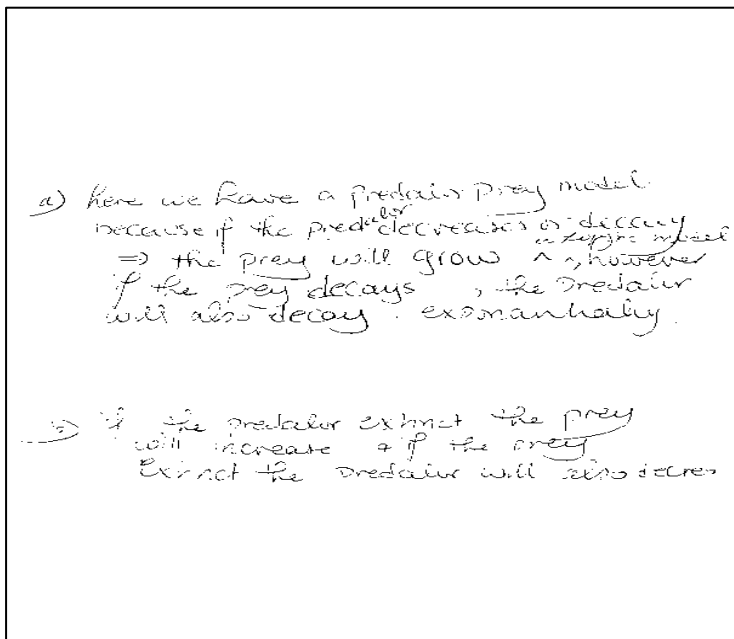 a) here we have a predain prey model
because if the predator decreases or decay
⇒ the prey will grow model, however
if the prey decays, the predaiur
will also decay. exponantially.
b) if the predator extinct the prey
will increase + if the prey
extinct the predatur will also decres